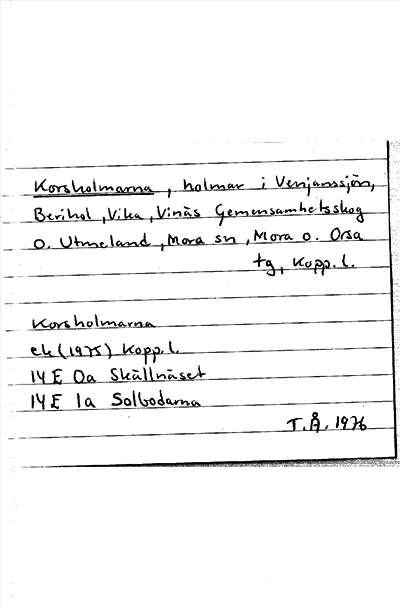 Korsholmarna, holmar i Venjanssjön,
Berihol, Vika, Vinäs Gemensamhetsskog
o. Utmeland, Mora sn, Mora o. Orsa
tg, Kopp. l.
Korsholmarna
ek (1975) Kopp. l.
14 E 0a Skällnäset
14 E 1a Solbodarna
T. Å. 1976